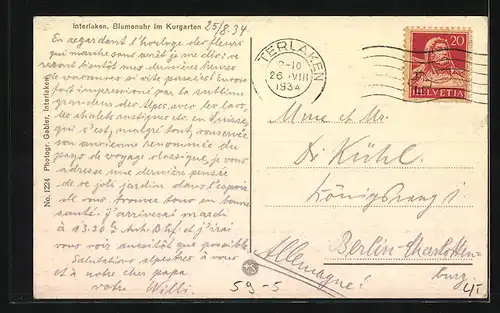 Interlaken. Blumenuhr im Kurgarten
25/8.34
En regardant l'horloge de fleurs
qui marche sans arrêt je me dis: ce
seront bientôt mes dernières heures
de vacances si vite passées! Encore
fort impressionné par la sublime
grandeur des Alpes avec les lacs,
des chalets rustiques etc. en Suisse,
qui s'est, malgré tout, conservée
son ancienne renommée du
pays de voyage classique, je vous
adresse une dernière pensée
de ce joli jardin dans l'espoir
de vous trouver bons en bonne
santé. J'arriverai mardi
à 13.30 h Anh. Bhf. et j'irai
vous voir aussitôt que possible.
Salutations alpestres à vous
et à notre cher papa
votre Willi.
No. 1224 Photogr. Gabler, Interlaken
TERLAKEN
2-10
26.VIII
1934
20
HELVETIA
Mme et Mr.
Dr. Kühl.
Königsweg
Berlin-Charlotten-
burg.
Allemagne!
59-5